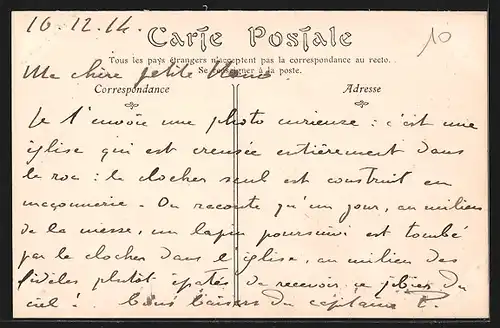 16.12.14.
10
Carte Postale
Tous les pays étrangers n'acceptent pas la correspondance au recto.
Se renseigner à la poste.
Ma chère petite
Correspondance
Adresse
Je t'envoie une photo curieuse : c'est une
église qui est creusée entièrement dans
le roc : le clocher seul est construit en
maçonnerie. On raconte qu'un jour, au milieu
de la messe, un lapin poursuivi est tombé
par le clocher dans l'église, au milieu des
fidèles plutôt épatés de recevoir ce gibier du
ciel ! Bons baisers du capitaine P.